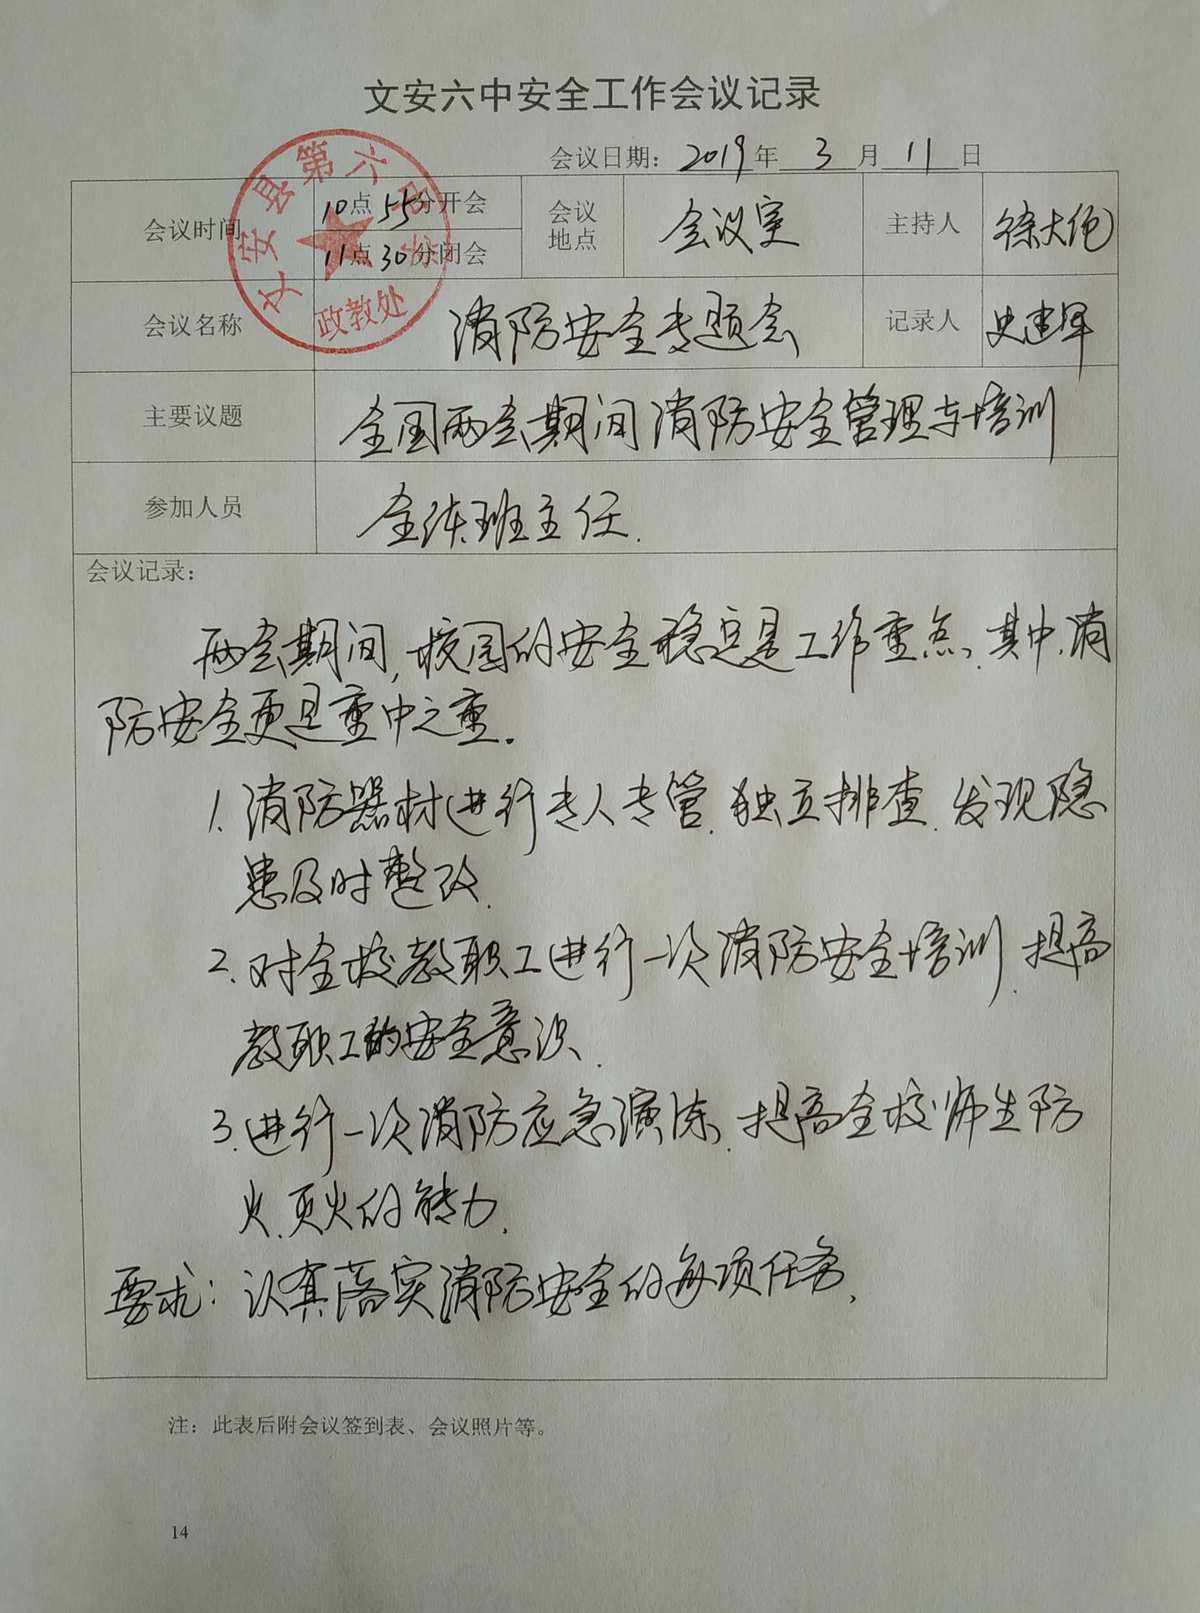 文安六中安全工作会议记录
会议日期：2019年 3 月 11 日
会议时间
10点55分开会
11点30分闭会
会议地点
会议室
主持人
徐大
会议名称
消防安全专题会
记录人
史建军
主要议题
全国两会期间消防安全管理与培训
参加人员
全体班主任.
文安县第六中学
政教处
会议记录：
两会期间,校园的安全稳定是工作重点,其中,消
防安全更是重中之重。
1.消防器材进行专人专管.独立排查.发现隐
患及时整改.
2.对全校教职工进行一次消防安全培训.提高
教职工的安全意识.
3.进行一次消防应急演练.提高全校师生防
火.灭火的能力.
要求：认真落实消防安全的每项任务.
注：此表后附会议签到表、会议照片等。
14